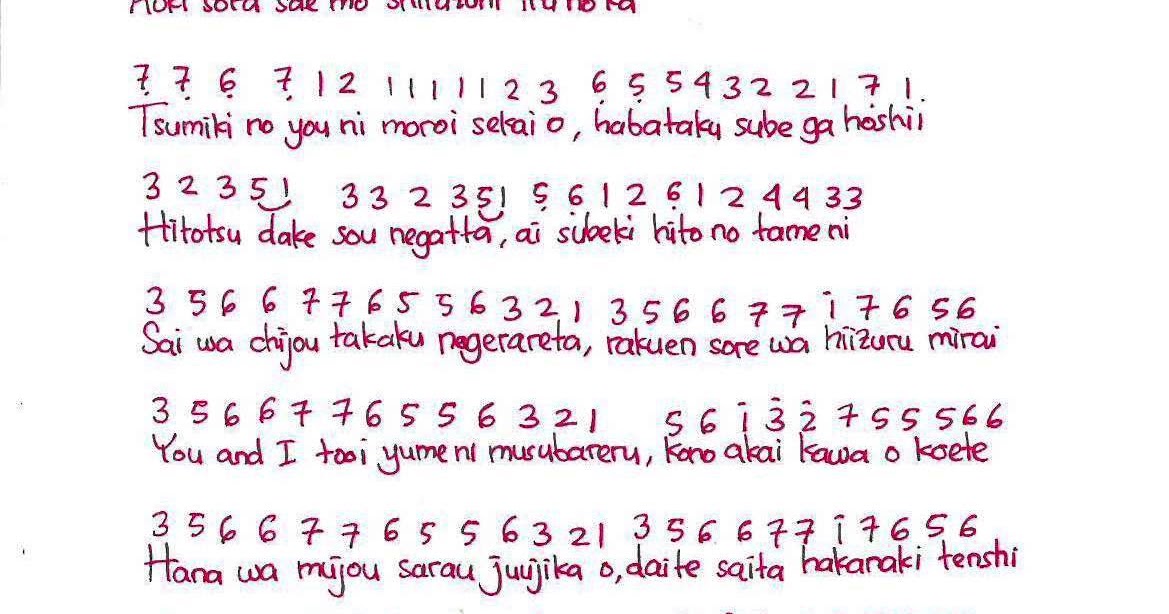 Aoki sora sae mo shirazuni iru no ka
7̣ 7̣ 6̣ 7̣ 1 2 1 1 1 1 1 2 3 6̣ 5̣ 5 4 3 2 2 2 1 7 1.
Tsumiki no you ni moroi sekai o, habataku sube ga hoshii
3 2 3 5 1 3 3 2 3 5 1 5̣ 6 1 2 6̣ 1 2 4 4 3 3
Hitotsu dake sou negatta, ai subeki hito no tame ni
3 5 6 6 7 7 6 5 5 6 3 2 1 3 5 6 6 7 7 1̇ 7 6 5 6
Sai wa chijou takaku negerareta, rakuen sore wa hiizuru mirai
3 5 6 6 7 7 6 5 5 6 3 2 1 5 6 1̇ 3̇ 2̇ 7 5 5 5 6 6
You and I tooi yume ni musubareru, kono akai kawa o koete
3 5 6 6 7 7 6 5 5 6 3 2 1 3 5 6 6 7 7 1̇ 7 6 5 6
Hana wa mujou sarau juujika o, daite saita hakanaki tenshi